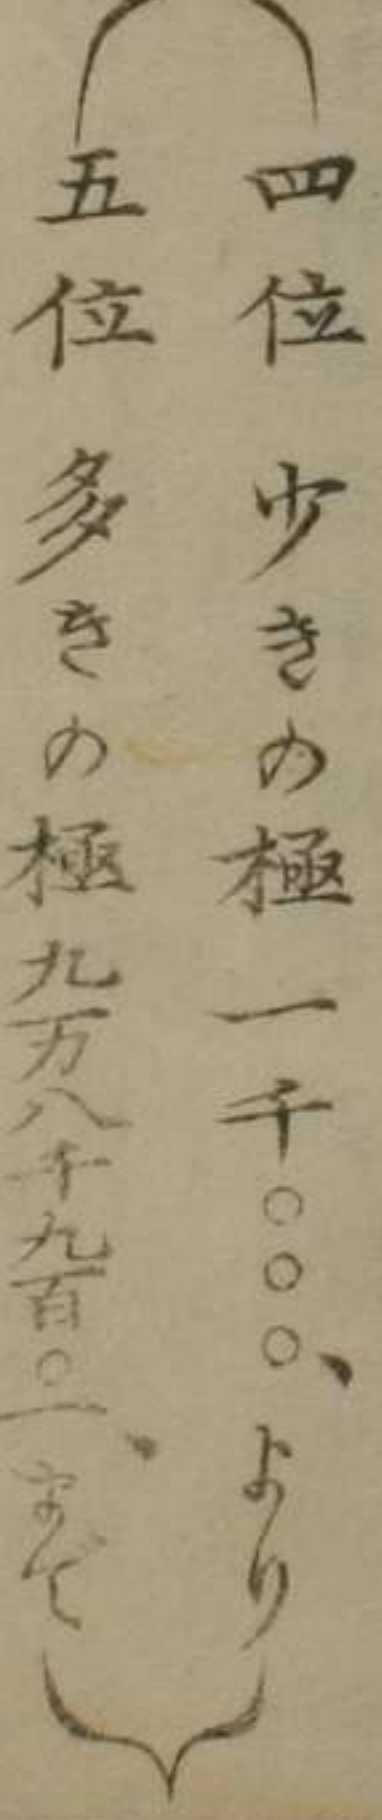 四位 少きの極 一千〇〇〇、より
五位 多きの極 九万八千九百〇一、まで